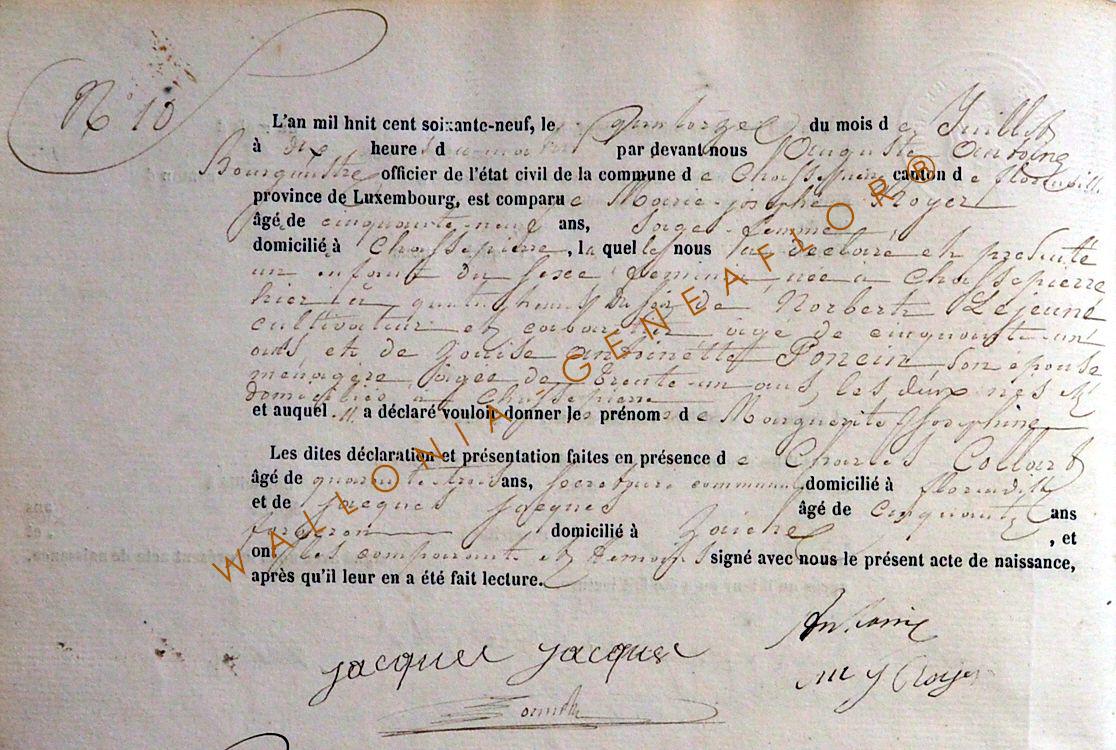 N 10
L'an mil hnit cent soixante-neuf, le quatorze du mois de Juillet
à dix heure d par devant nous Auguste Antoine
Bourguestre officier de l'état civil de la commune de Chassepierre canton de florenville
province de Luxembourg, est comparue Marie josephe Royer
âgé de cinquante-neuf ans, sage-femme
domicilié à Chassepierre, la quelle nous a déclaré et présenté
un enfant du sexe féminin née à Chassepierre
hier à quatre heures du soir de Norbert Lejeune
cultivateur et cabaretier âgé de cinquante-un
ans et de Louise antoinette Poncin, son épouse
ménagère, âgée de trente-un ans, les deux nés et
domiciliés à Chassepierre
et auquel il a déclaré vouloir donner le prénom de Marguerite Josephine
Les dites déclaration et présentation faites en présence de Charles Collart
âgé de quarante trois ans, secrétaire communal domicilié à florenville
et de jacques jacques âgé de cinquante ans
forgeron domicilié à Laiche, et
ont les comparants et témoins signé avec nous le présent acte de naissance,
après qu'il leur en a été fait lecture.
Antoine
jacques jacques
M J Royer
WALLONIA GENEAFLOR®